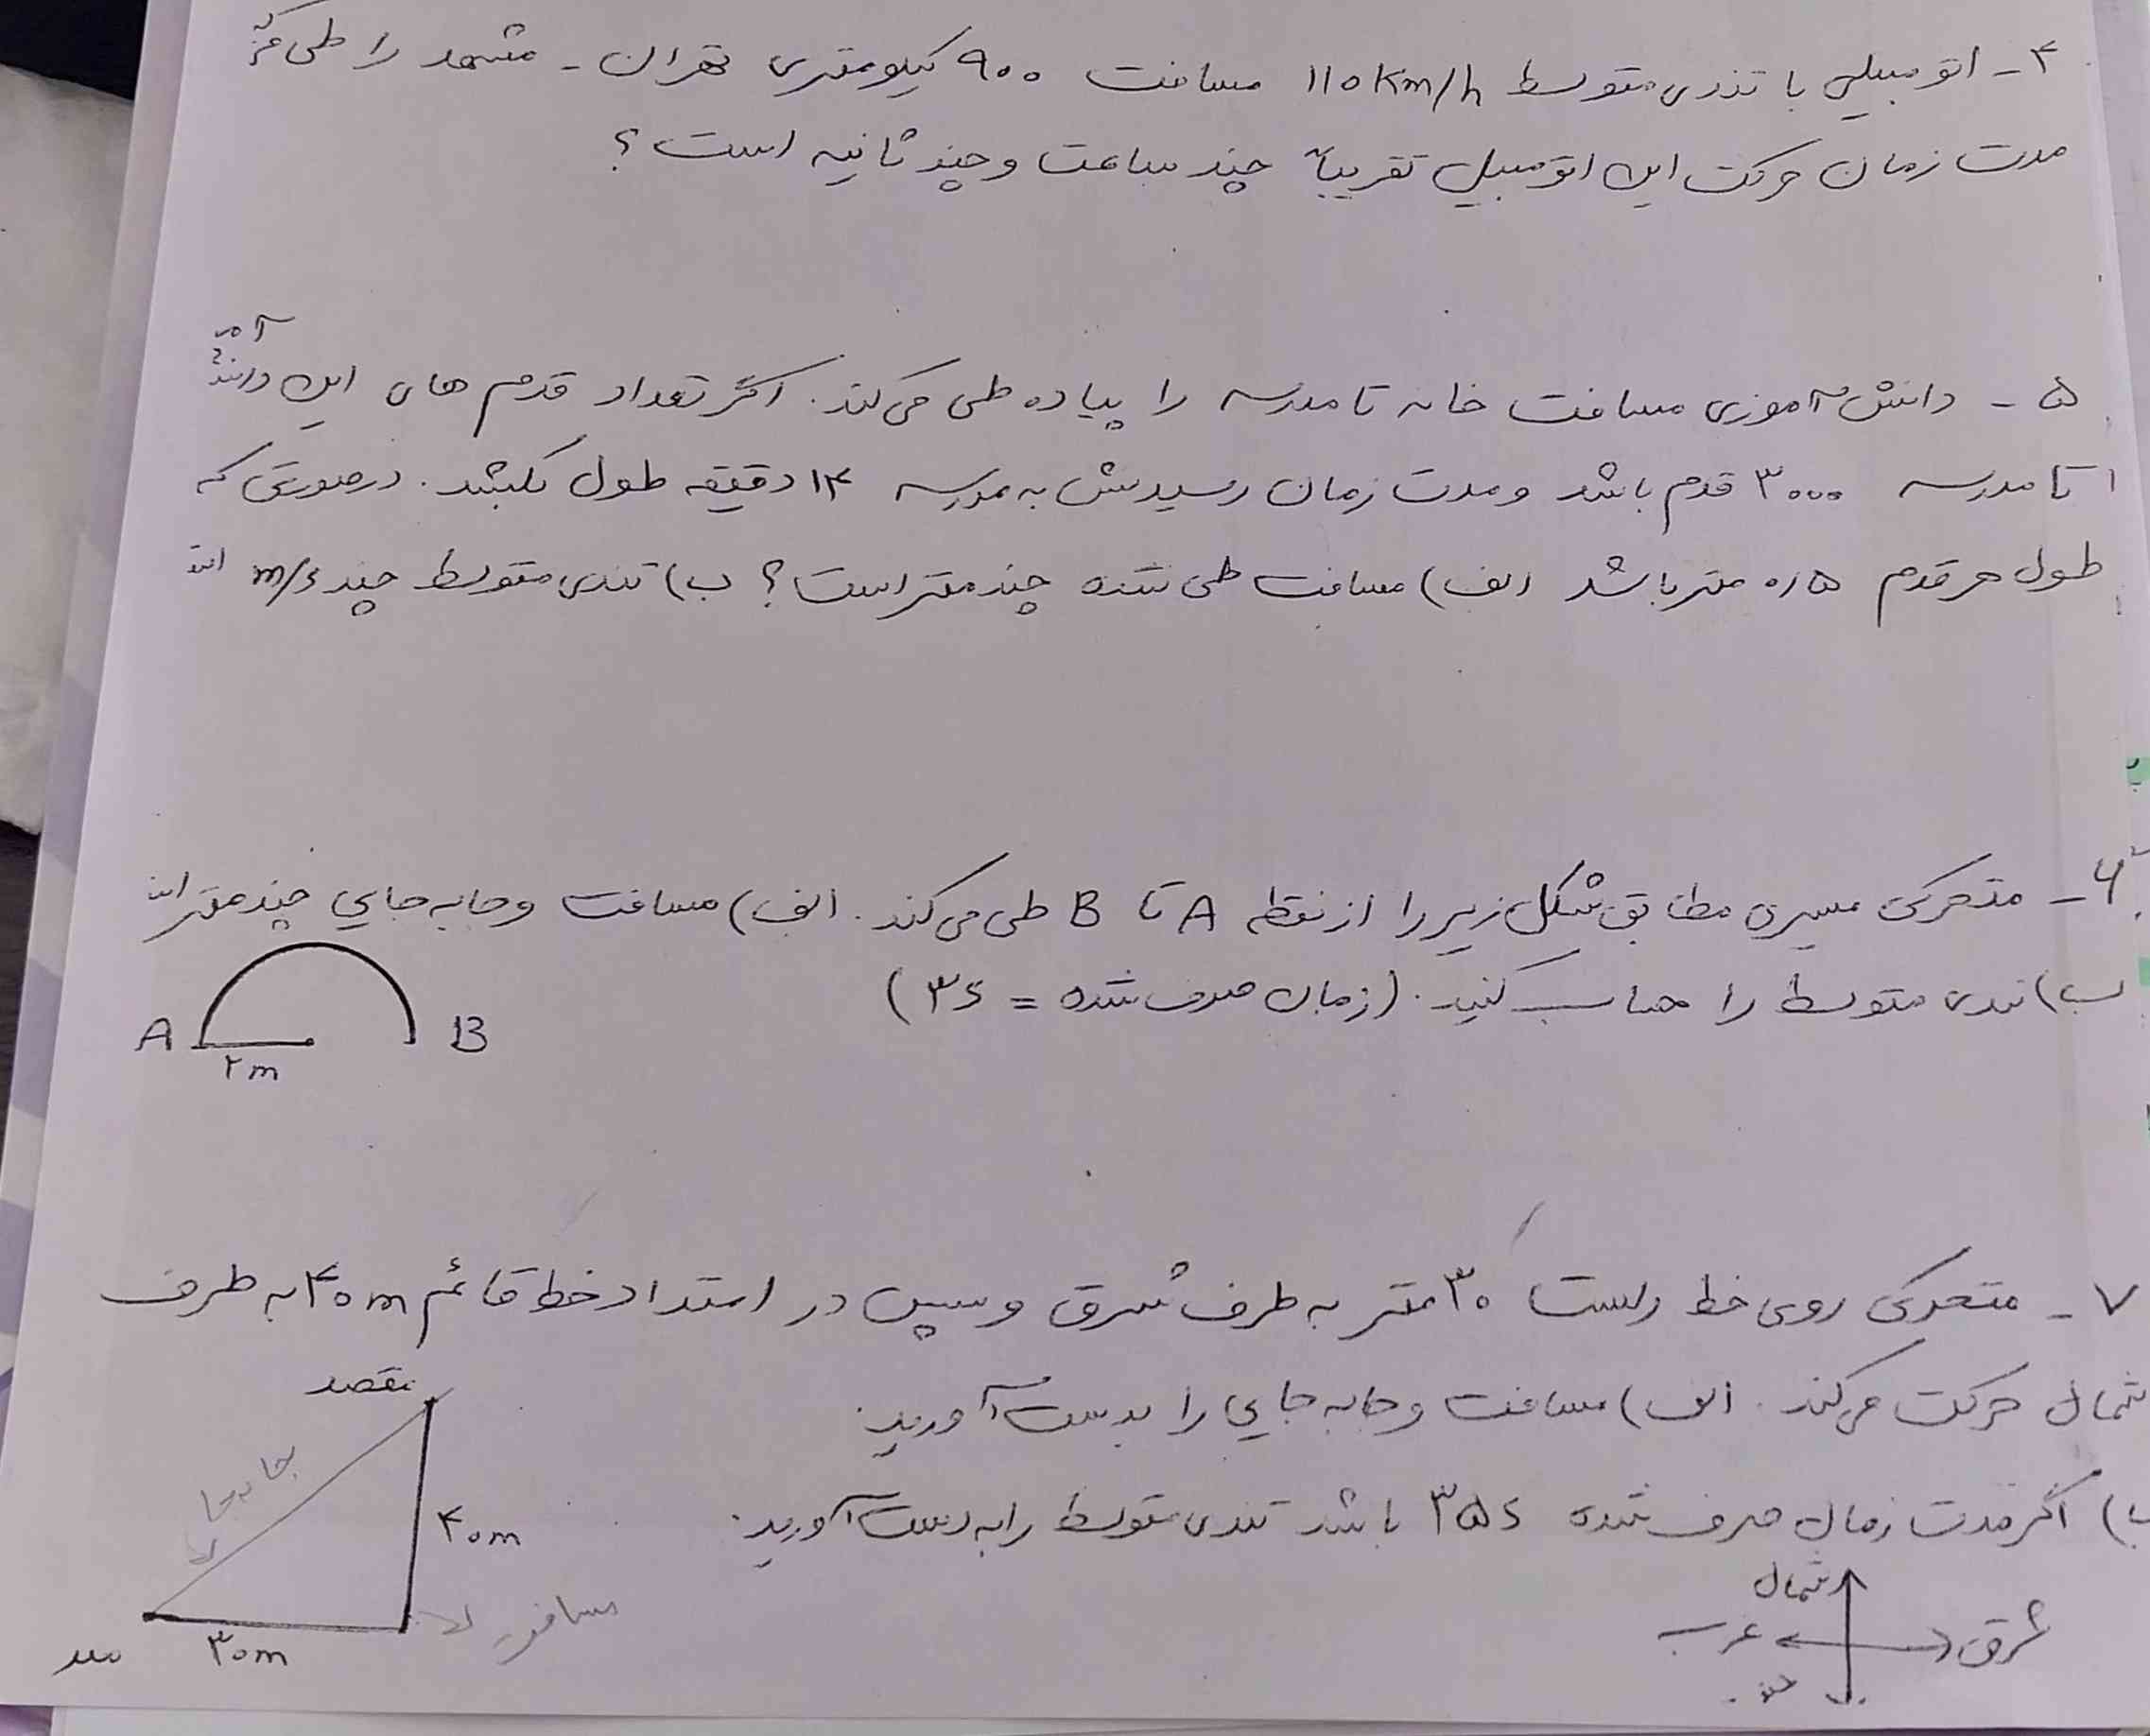 ۴ - اتومبیلی با تندی متوسط ۱۱۰ km/h مسافت ۹۰۰ کیلومتری تهران - مشهد را طی
مدت زمان حرکت این اتومبیل تقریباً چند ساعت و چند ثانیه است؟
۵ - دانش آموزی مسافت خانه تا مدرسه را پیاده طی می کند. اگر تعداد قدم های این دانش آموز
تا مدرسه ۳۰۰۰ قدم باشد و مدت زمان رسیدنش به مدرسه ۱۴ دقیقه طول بکشد. درصورتی که
طول هر قدم ۰/۵ متر باشد الف) مسافت طی شده چند متر است؟ ب) تندی متوسط چند m/s است
۶ - متحرکی مسیری مطابق شکل زیر را از نقطه A تا B طی می کند. الف) مسافت و جابه جایی چند متر است
ب) تندی متوسط را حساب کنید. (زمان صرف شده = ۳s)
A B
۲m
۷ - متحرکی روی خط راست ۳۰ متر به طرف شرق و سپس در امتداد خط قائم ۴۰m به طرف
شمال حرکت می کند. الف) مسافت و جابه جایی را بدست آورید.
ب) اگر مدت زمان صرف شده ۳۵s باشد تندی متوسط را به دست آورید.
مقصد
۴۰m
۳۰m
مسافت
شمال
شرق
غرب